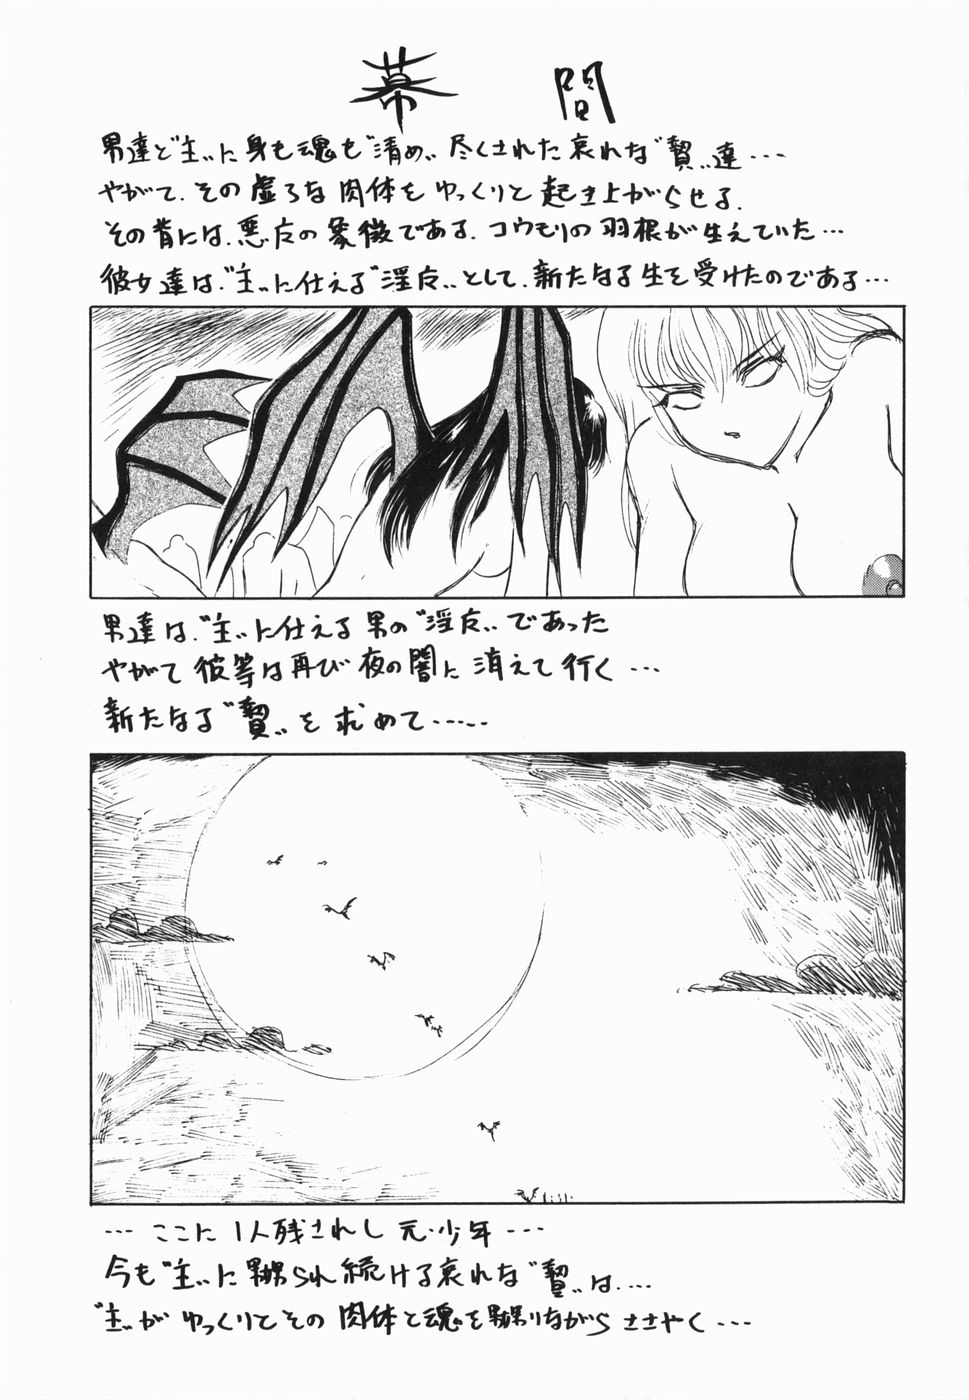 幕間
男達と〝主〟に身も魂も〝清め〟尽くされた哀れな〝贄〟達…
やがて、その虚ろな肉体をゆっくりと起き上がらせる、
その背には、悪魔の象徴である、コウモリの羽根が生えていた…
彼女達は、〝主〟に仕える〝淫魔〟として、新たなる生を受けたのである…
男達は、〝主〟に仕える男の〝淫魔〟であった
やがて彼等は再び夜の闇に消えて行く…
新たなる〝贄〟を求めて……
…ここに1人残されし元・少年…
今も〝主〟に嬲られ続ける哀れな〝贄〟は…
〝主〟がゆっくりとその肉体と魂を嬲りながらささやく…